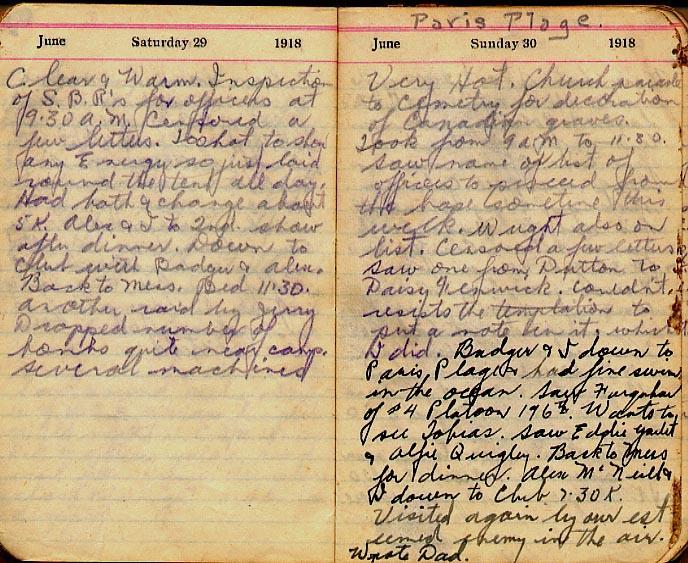 June Saturday 29 1918
Clear & Warm. Inspection
of S.B.R's for officers at
9.30 a.m. Censored a
few letters. Too hot to show
any Energy so just laid
round the tent all day.
Had bath & change about
5 K. Alex & I to 2nd. show
after dinner. Down to
Club with Badger & Alex.
Back to Mess. Bed 11.30.
another raid by Jerry
Dropped number of
bombs quite near camp.
Several machines
Paris Plage.
June Sunday 30 1918
Very Hot. Church parade
to Cemetry for decoration
of Canadian graves.
Took from 9 a.m. to 11.30.
Saw name on list of
officers to proceed from
the base sometime this
week. Wright also on
list. Censored a few letters
Saw one from Dutton to
Daisy Fenwick. Couldn't
resist the temptation to
put a note in it, which
I did. Badger & I down to
Paris Plage & had fine swim
in the ocean. Saw Farquhar
of #4 Platoon 196th. Wants to
see Tobias. Saw Eddie
& Alfie Quigley. Back to Mess
for dinner. Alex McNeill &
I down to Club 7.30 K.
Visited again by our est
eemed enemy in the air.
Wrote Dad.